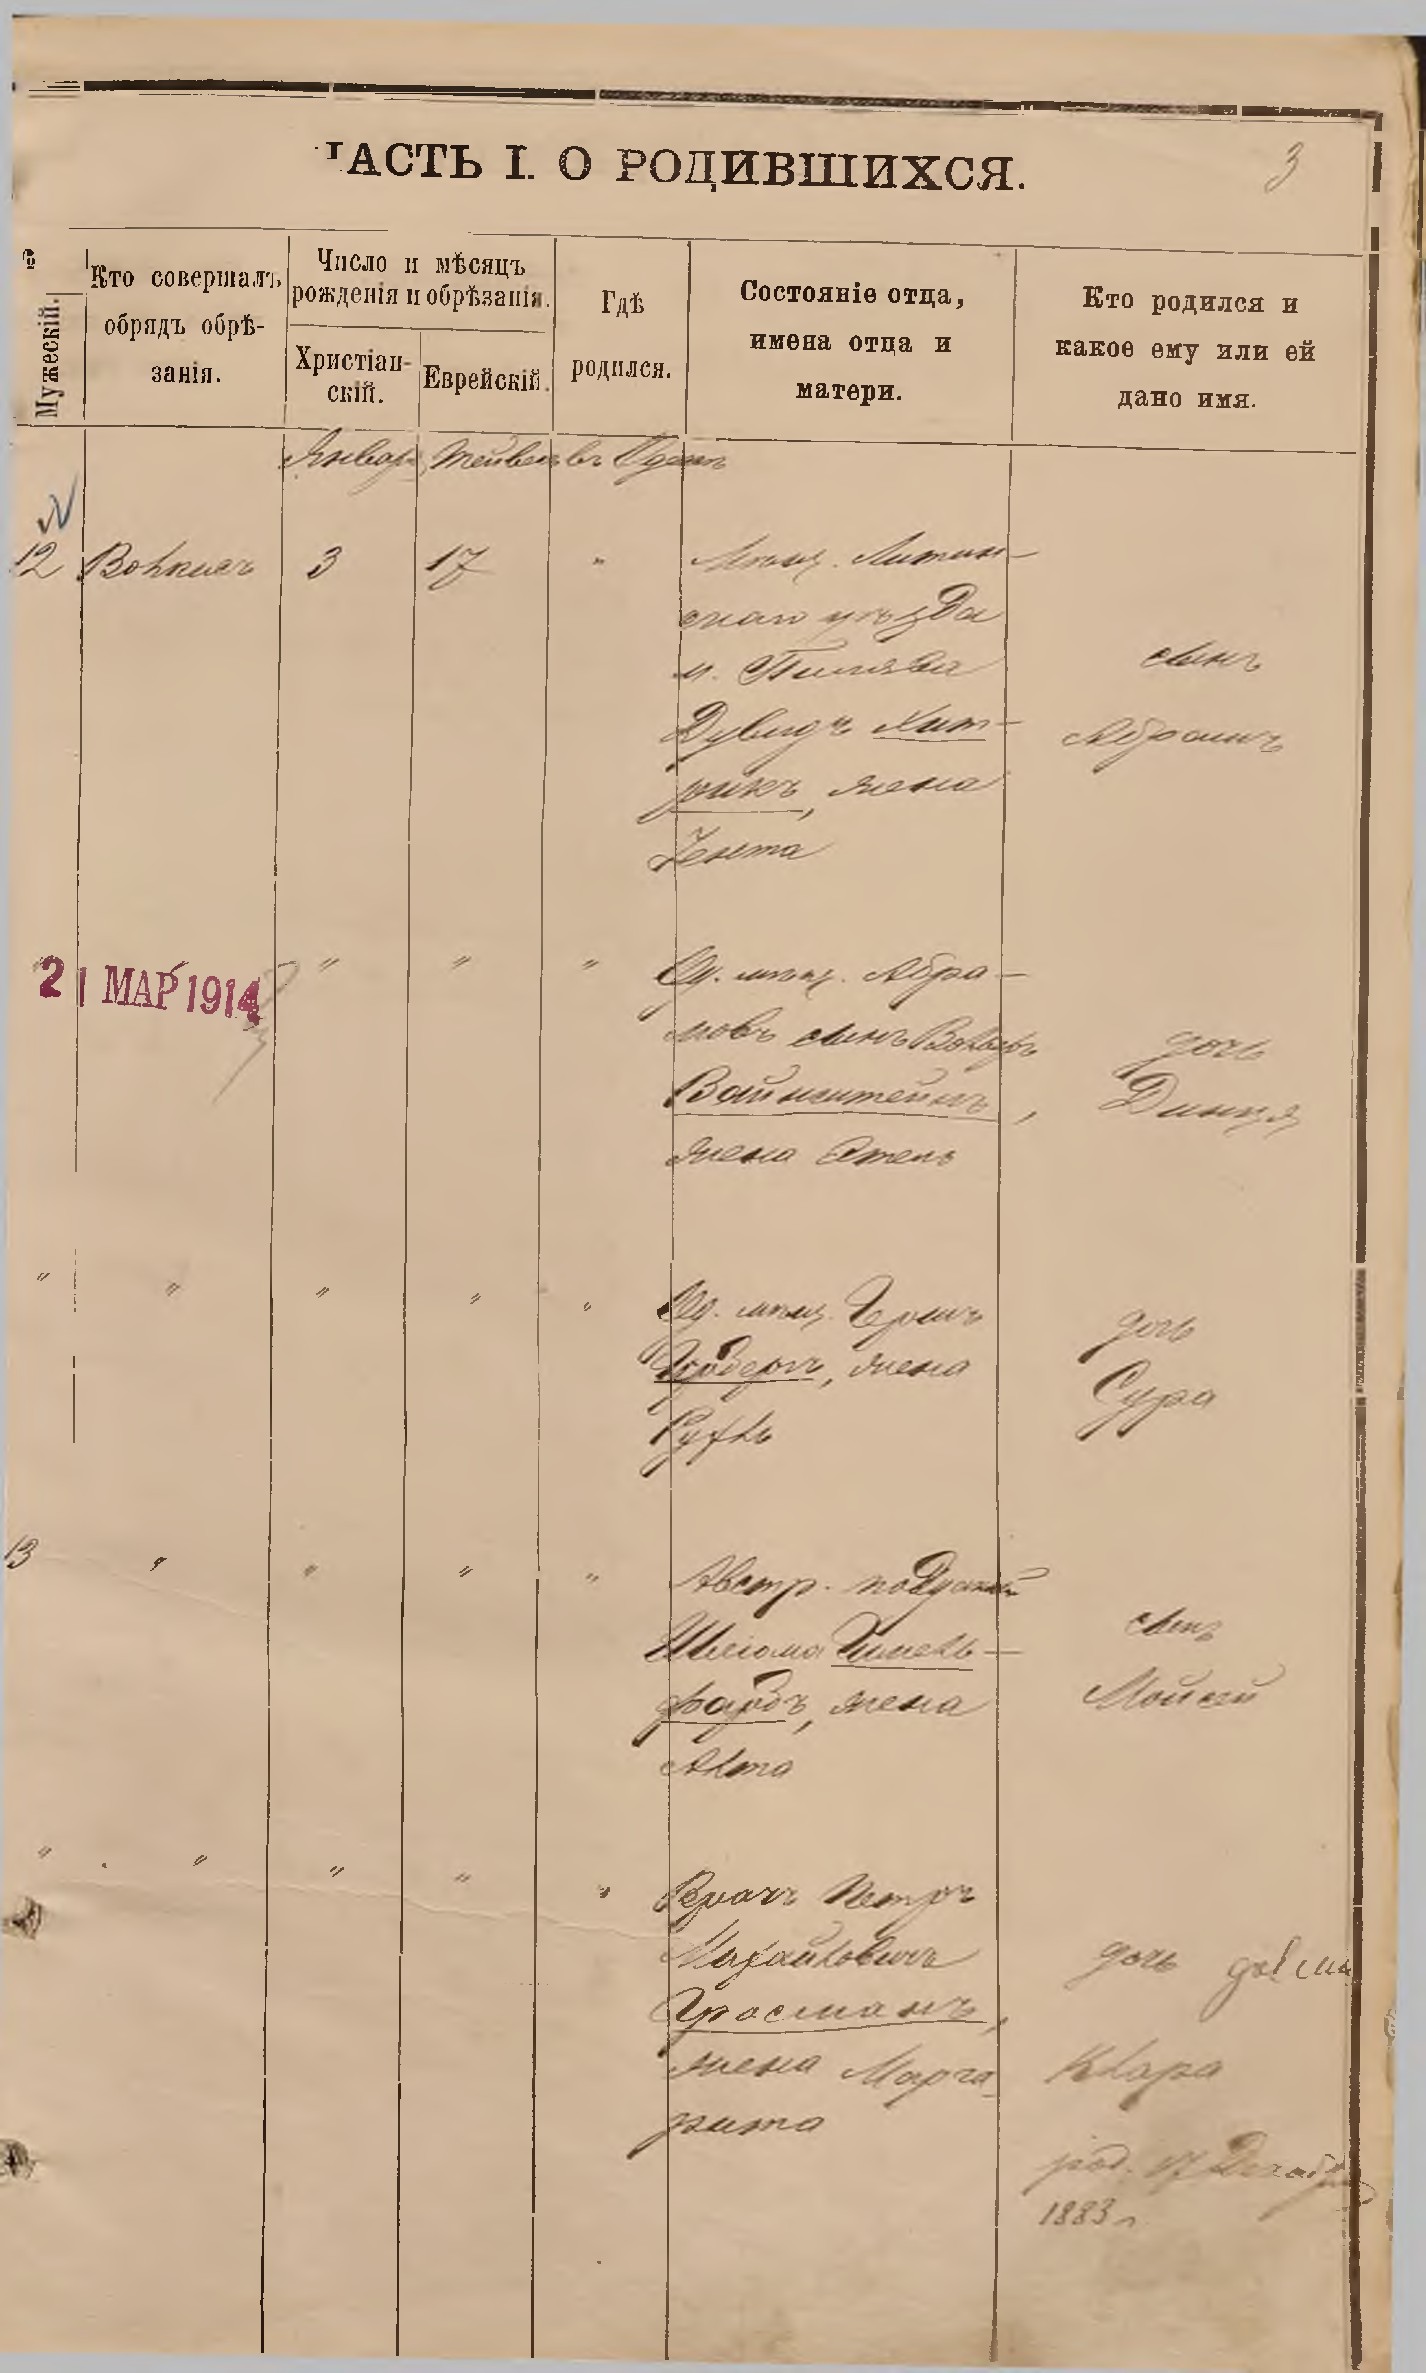 ЧАСТЬ I. О РОДИВШИХСЯ.
3
Мужескій.
Кто совершалъ
обрядъ обрѣ-
занія.
Число и мѣсяцъ
рожденія и обрѣзанія.
Христіан-
скій.
Еврейскій.
Гдѣ
родился.
Состояніе отца,
имена отца и
матери.
Кто родился и
какое ему или ей
дано имя.
Январь Тейвеѳ въ Одессѣ
12 3 17 " Мѣщ. Литин-
скаго уѣзда
м. Пилява
Дувидъ Хит-
рикъ, жена
Іента
сынъ
Абрамъ
21 МАР 1914
" " " Од. мѣщ. Абра-
мовъ сынъ Вольфъ
Вайнштейнъ,
жена Этель
дочь
Динця
" " " " " Од. мѣщ. Гершъ
жена
Рухль
дочь
Сура
13 " " " " Австр. подданый
Шлеома Гинель-
фарбъ, жена
сынъ
Мойсей
" " " " " Врачъ Петръ
Михайловичъ
Гросманъ,
жена Марга-
рита
дочь
Клара
род. 17 Декабря
1883 г.